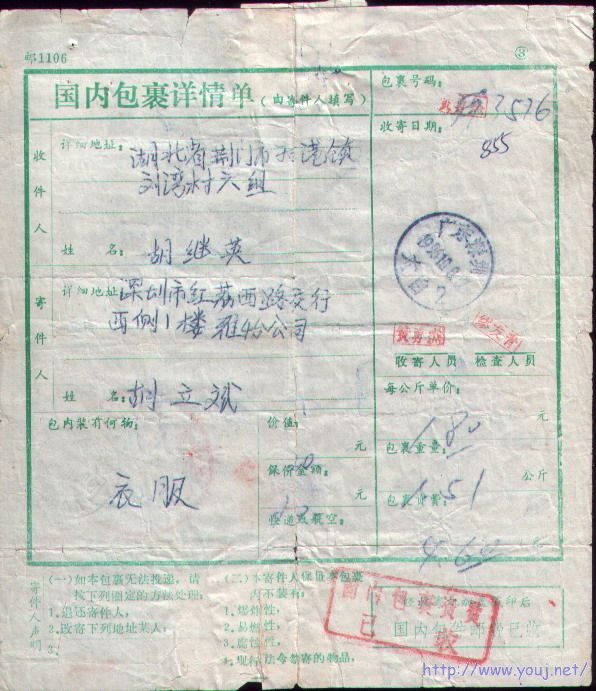 邮1106
③
国内包裹详情单(由寄件人填写)
包裹号码:
2576
收寄日期:
855
收件人
详细地址:
湖北省荆门市拾浇镇
刘湾村六组
姓名:
胡继英
寄件人
详细地址:
深圳市红荔西路交行
西侧1楼
公司
姓名:
胡立斌
广东深圳
收寄人员
检查人员
每公斤单价:
元
1.80
包裹重量:
公斤
1.51
包裹资费:
包内装有何物:
衣服
价值:
元
保价金额:
元
快递或航空:
寄件人声明
(一)如本包裹无法投递,请
按下列圈定的方法处理:
1.退还寄件人,
2.改寄下列地址某人:
3.
(二)本寄件人保证本包裹
内不装有:
1.爆炸性;
2.易燃性;
3.腐蚀性;
4.现行法令禁寄的物品,
国内包裹资费
已收
印后
国内包件邮费已收
http://www.youj.net/